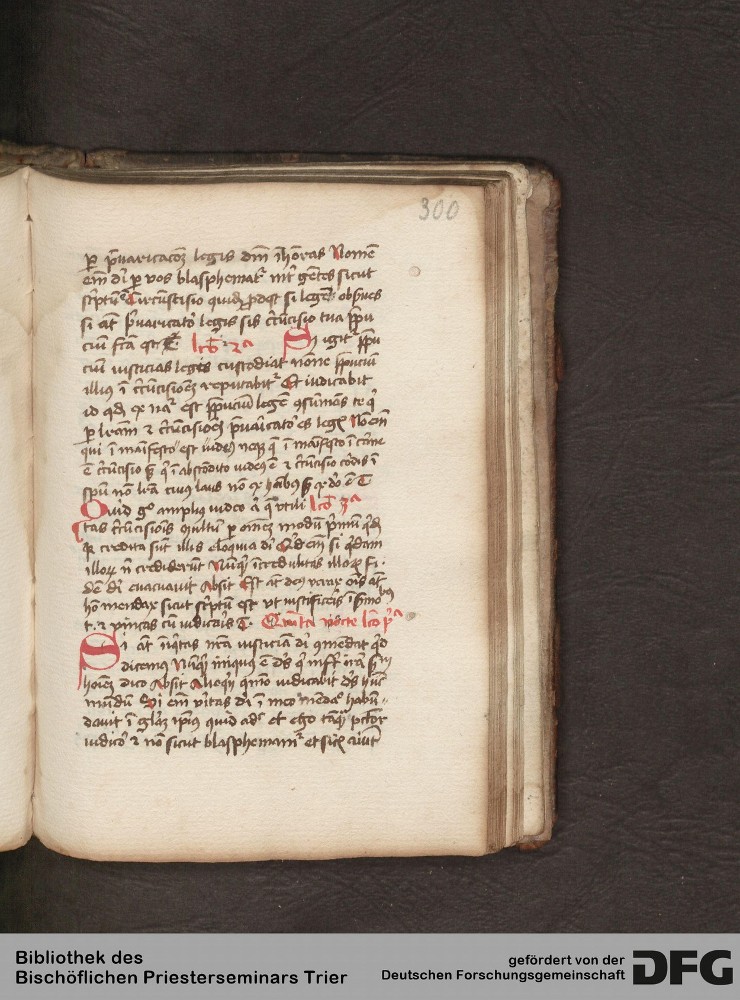 300
ꝑ p̄uaricacōꝫ legis dm̄ īhōras Nomē
em̄ dī ꝑ vos blasphemat᷒ int̄ gētes sicut
sc̄ptū ē Circūcisio quidē ꝓdest si legē obẜues
si aūt p̄uaricatō legis sis circūcisio tua p̄pu
cium fc̄a est lcō 2ᵃ Si igit᷒ p̄pu
cium iusticias legis custodiat nōne p̄pucium
illius ī circūcisionē reputabit᷒ Et iudicabit
id qd̄ ex nat᷒ est p̄puciū legē ꝯsūmās te q̄
ꝑ lr̄am ⁊ circūcisioēꝫ p̄uaricatōr es legꝭ Nō em̄
qui ī maīfesto est iudeꝰ neqꝫ q̄ ī maīfesto ī carne
ē circūcisio sꝫ q̄ ī abscōdito iudeꝰ ē ⁊ circūcisio cōdis ī
sp̄u nō lr̄a cuiꝰ laus nō ex hoībꝰ sꝫ ex dō ē
Quid gͦ ampliꝰ iudeo ē ā q̄ vtili lcō 3ᵃ
tas circūcisiōis Multū ꝑ oēm modū p̄mū qd̄
credita sūt illis eloquia dī Qͥd em̄ si qͥdam
illoꝝ nō crediderūt Nūqͥd īcredulitas illoꝝ fi
dē dī euacuauit Absit Est aūt deꝰ verax oīs aūt
hō mendax sicut sc̄ptū est vt iustificeris ī ẜmoībꝰ
t. ⁊ vincas cū iudicaris Quīta nocte lcō pͥᵃ
Si aūt īiqͥtas nr̄a iusticiā dī ꝯmēdat qͥd
dicemus Nūqͥd iniquꝰ ē dꝰ qͥ īnfert irā ẜm
hoīeꝫ dico Absit Alioqͥn quō iudicabit dꝰ hūc
mūdū Si em̄ vītas dī ī meo mēdaͨ habū
dauit ī glāꝫ ip̄ius quid adͨ et ego tāqͣ pc̄tor
iudicor ⁊ nō sicut blasphemam᷒ et sicut aiūt
Bibliothek des
Bischöflichen Priesterseminars Trier
gefördert von der
Deutschen Forschungsgemeinschaft
DFG